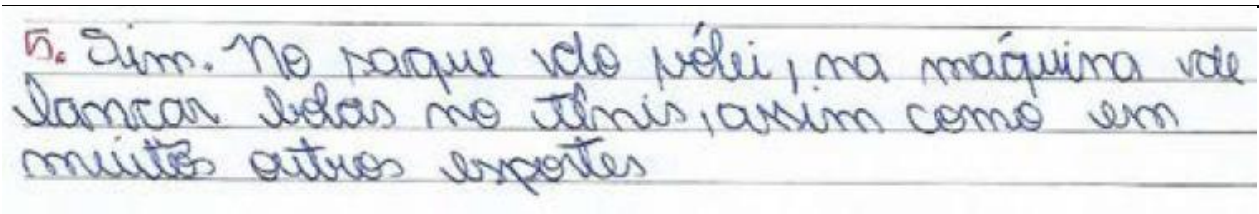 5. Sim. No saque do vôlei, na máquina de
lançar bolas no tênis, assim como em
muitos outros esportes